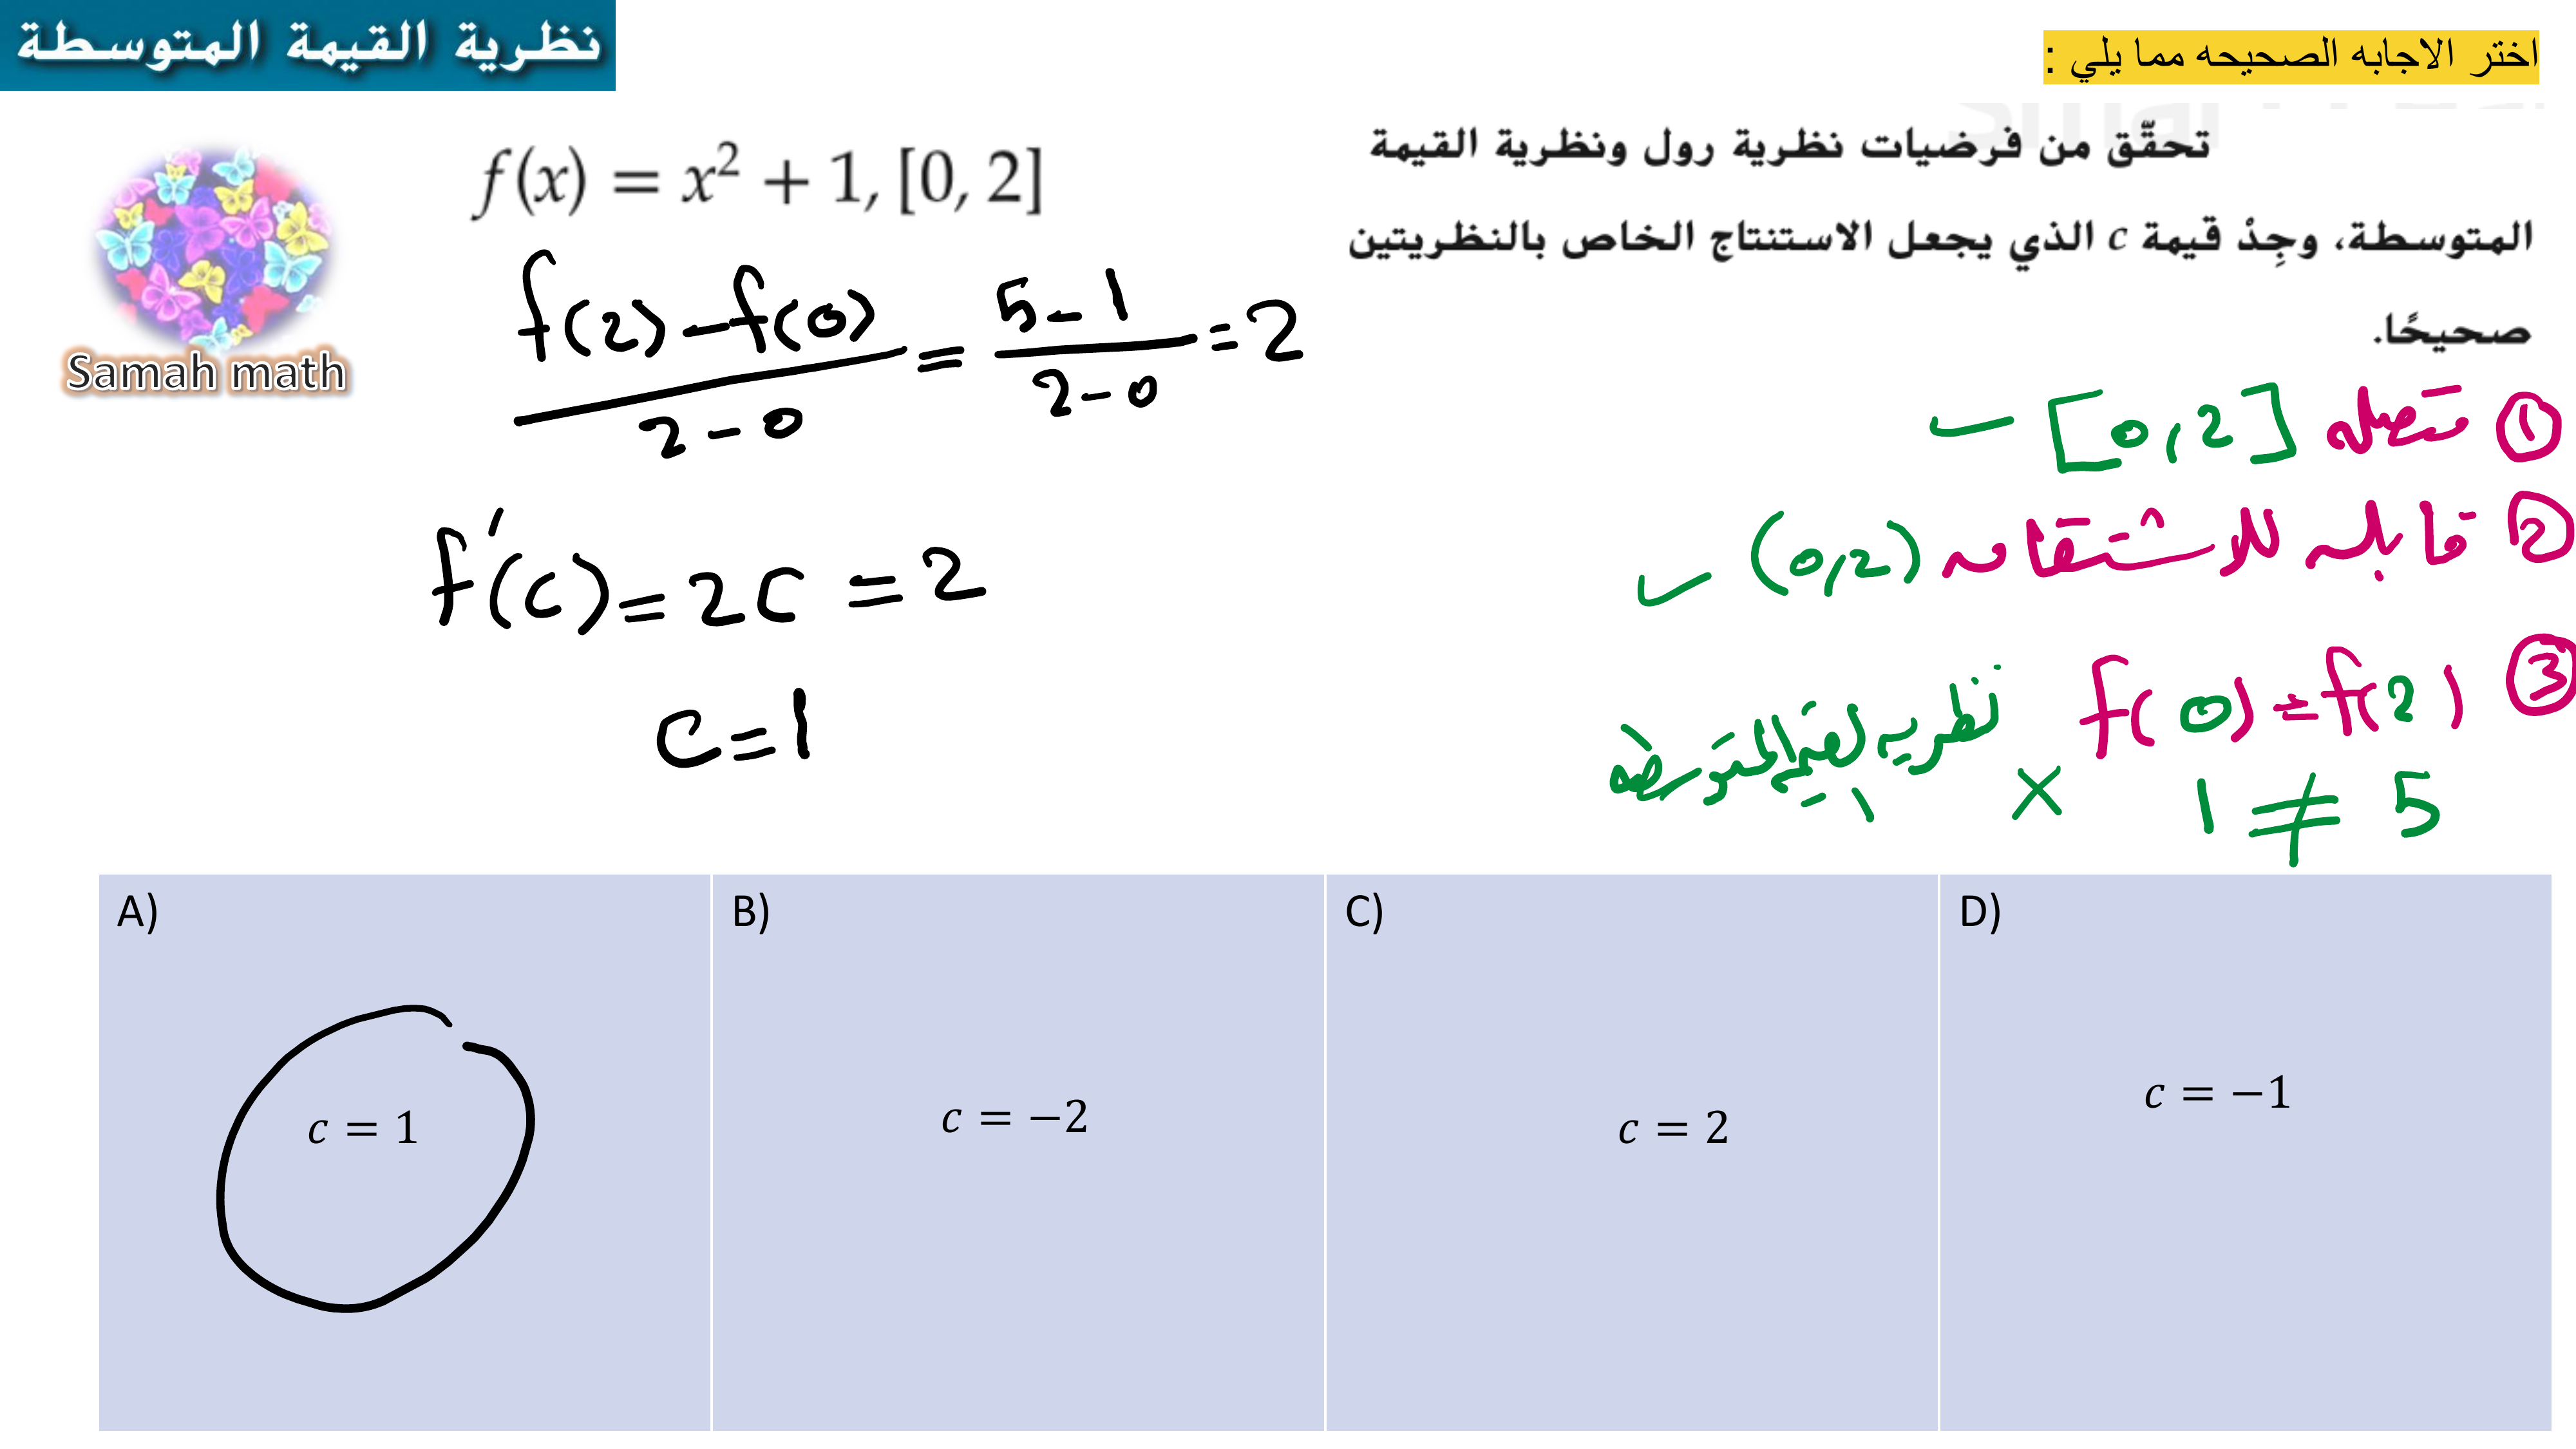 نظرية القيمة المتوسطة
اختر الاجابه الصحيحه مما يلي :
تحقّق من فرضيات نظرية رول ونظرية القيمة
المتوسطة، وجِدْ قيمة c الذي يجعل الاستنتاج الخاص بالنظريتين
صحيحًا.
f(x) = x² + 1, [0, 2]
Samah math
f(2) - f(0) / 2 - 0 = 5 - 1 / 2 - 0 = 2
f'(c) = 2c = 2
c = 1
① متصله [0,2] ✓
② قابله للاشتقاق (0,2) ✓
③ f(0) = f(2)
1 ≠ 5 ×
نظريه القيمه المتوسطه
A)
c = 1
B)
c = −2
C)
c = 2
D)
c = −1